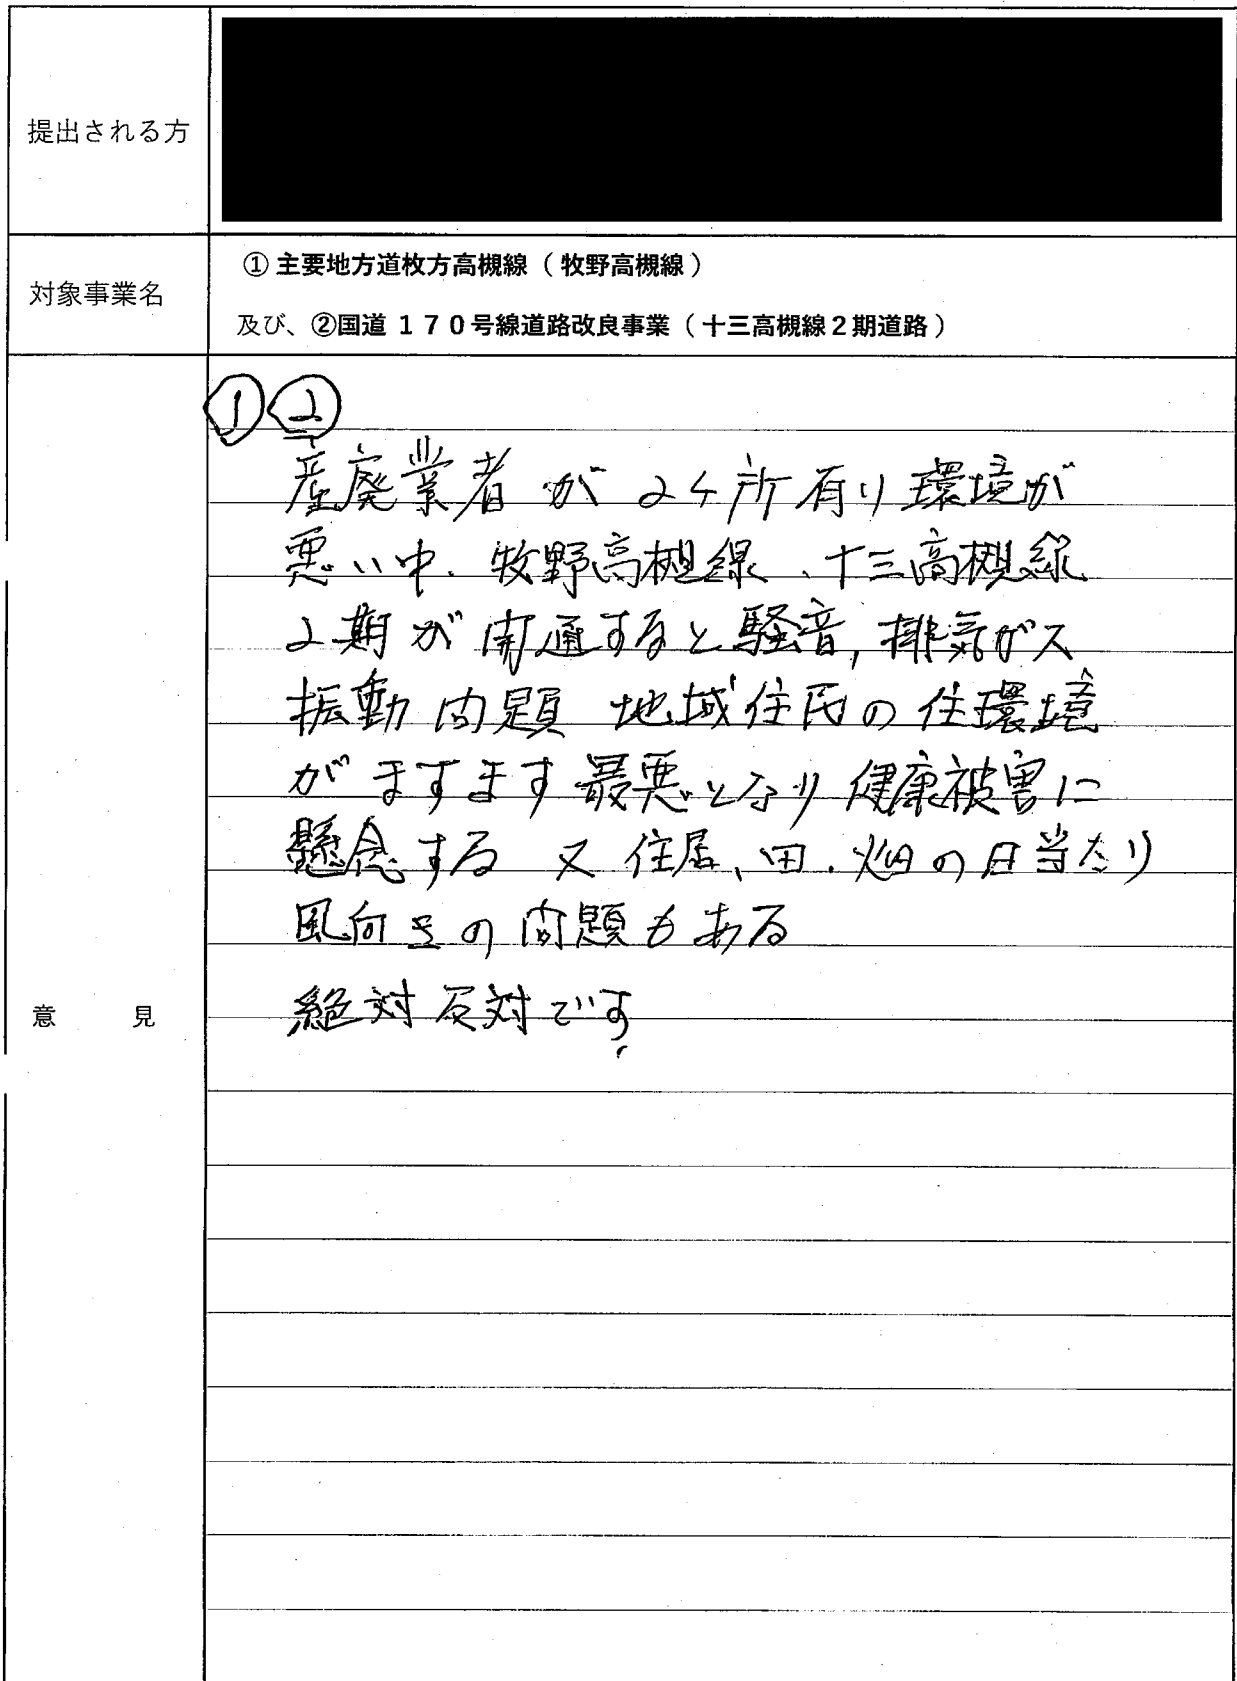 提出される方
対象事業名
① 主要地方道枚方高槻線（牧野高槻線）
及び、②国道１７０号線道路改良事業（十三高槻線２期道路）
意　見
① ②
産廃業者が２ヶ所有り環境が
悪い中、牧野高槻線、十三高槻線
２期が開通すると騒音，排気ガス
振動問題 地域住民の住環境
がますます最悪となり健康被害に
懸念する 又 住居、田、畑の日当たり
風向きの問題もある
絶対反対です